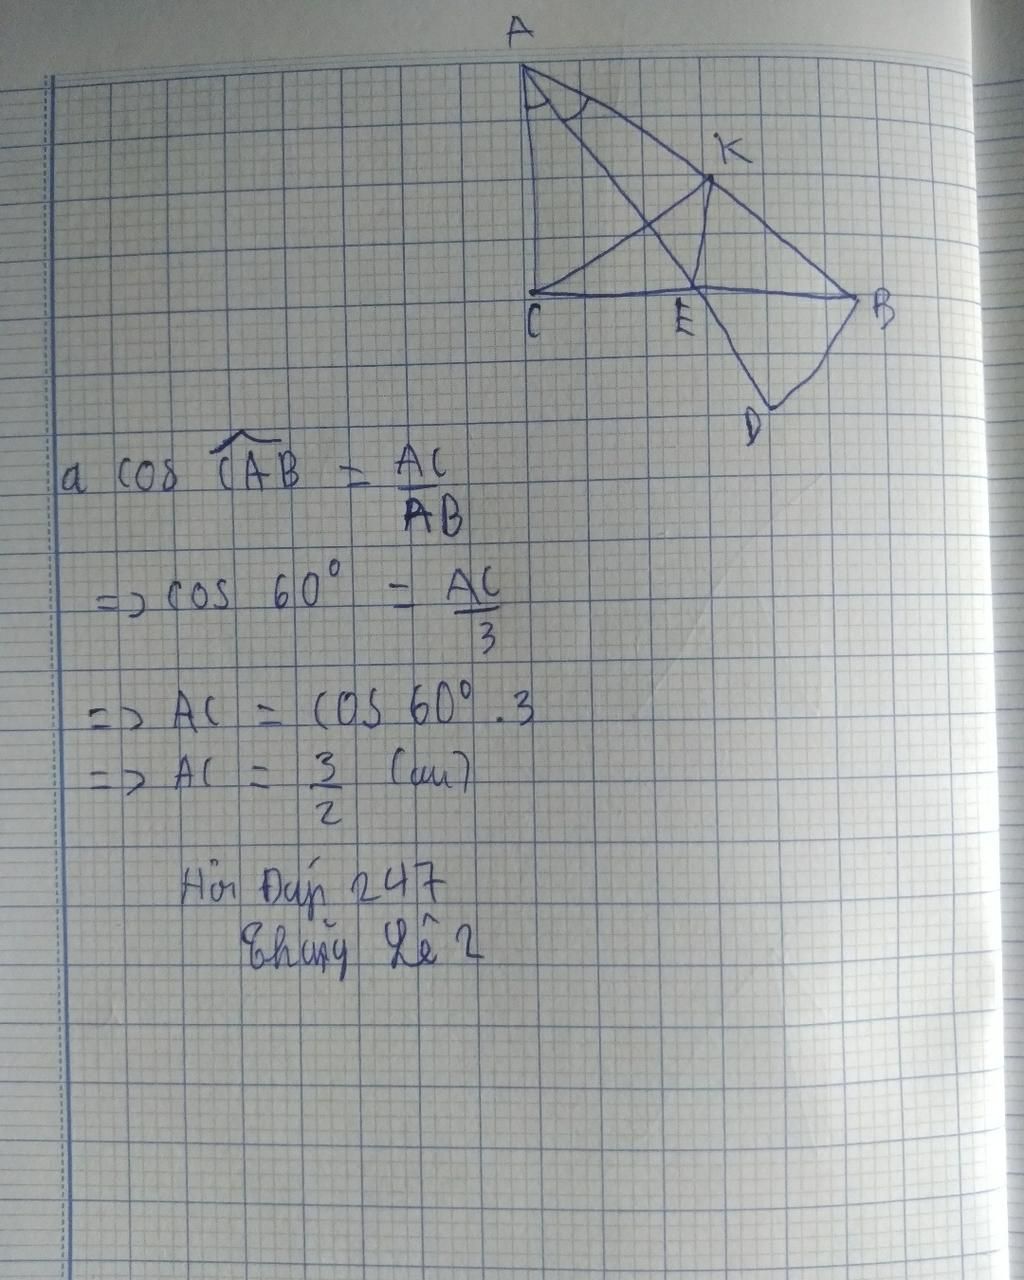 A
K
C
E
B
D
a cos CAB = AC/AB
=> cos 60° = AC/3
=> AC = cos 60° . 3
=> AC = 3/2 (cm)
Hỏi Đáp 247
Lê 2